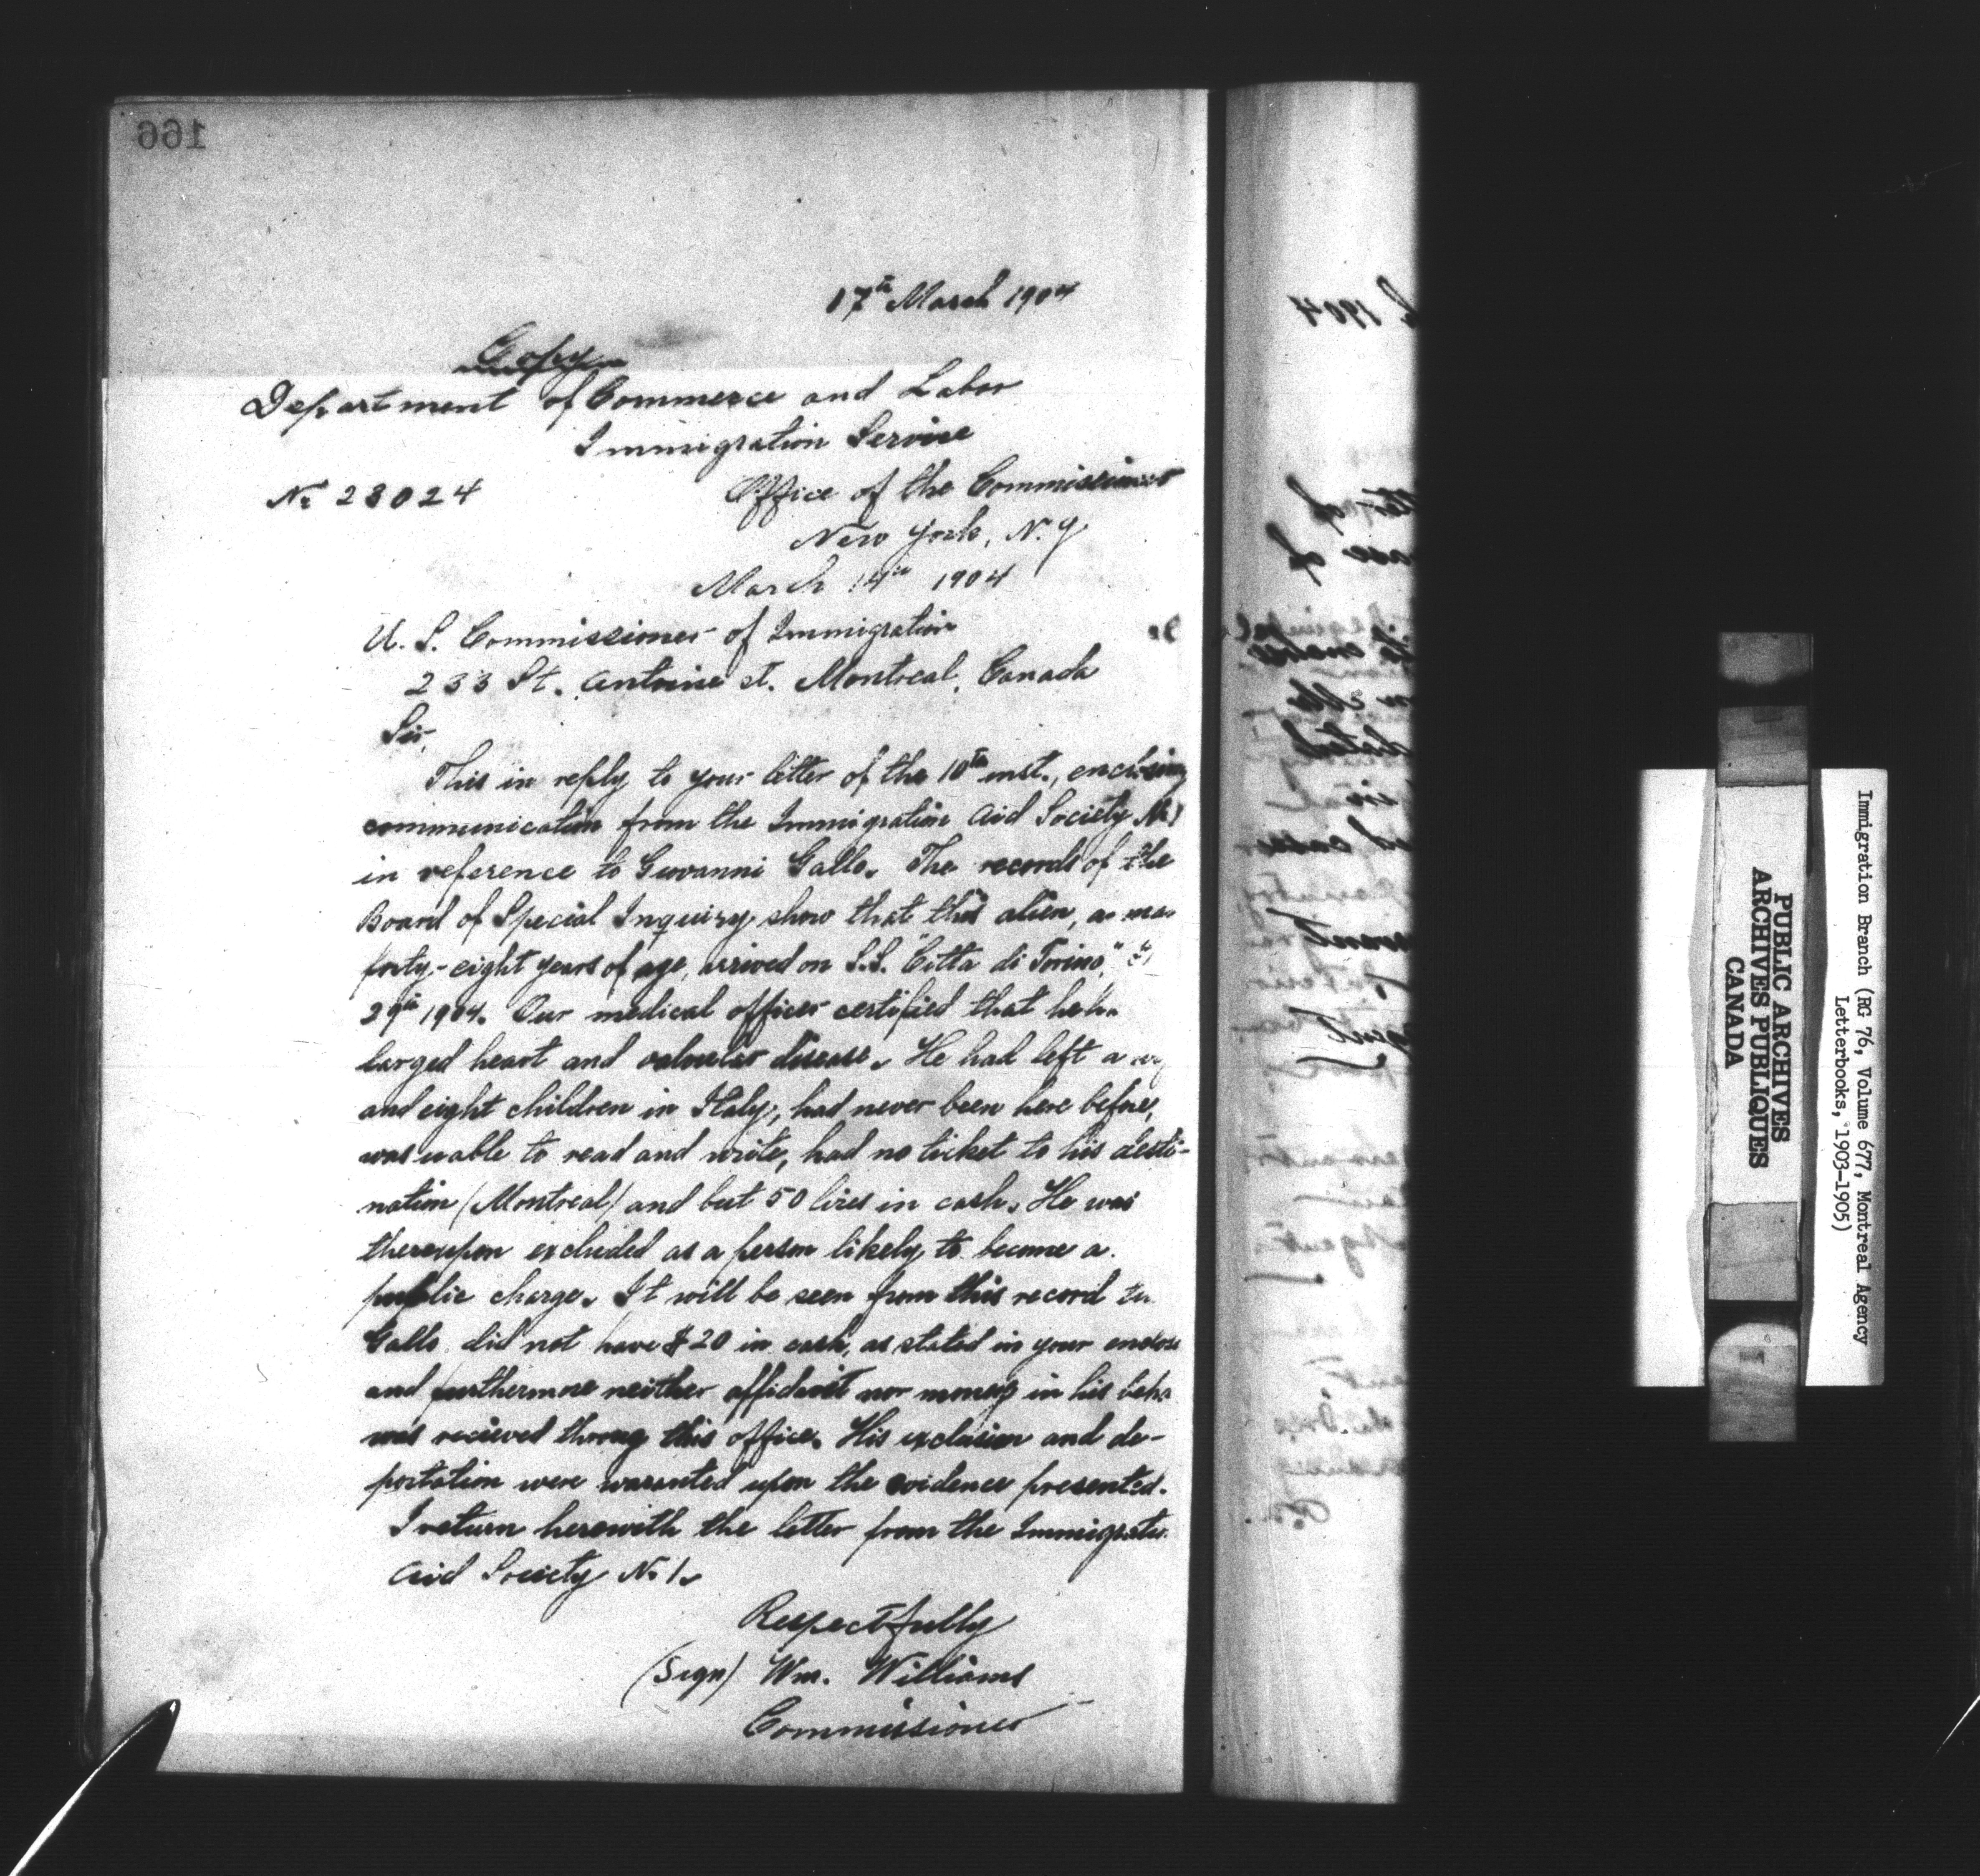 166
17th March 1904
Copy
Department of Commerce and Labor
Immigration Service
No 23024
Office of the Commissioner
New York, N.Y
March 14th 1904
U. S. Commissioner of Immigration
233 St. Antoine st. Montreal, Canada
Sir,
This in reply to your letter of the 10th inst., enclosing
communication from the Immigration Aid Society No 1
in reference to Giovanni Gallo. The records of the
Board of Special Inquiry show that this alien, a
forty-eight years of age, arrived on S.S. "Citta di Torino,"
29th 1904. Our medical officer certified that he
larged heart and valvular disease. He had left a
and eight children in Italy, had never been here before,
was uable to read and write, had no ticket to his desti-
nation (Montreal) and but 50 lires in cash. He was
thereupon excluded as a person likely to become a
public charge. It will be seen from this record
Gallo did not have $20 in cash, as stated in your
and furthermore neither affidavit nor money in his
was recieved throug this office. His exclusion and de-
portation were waranted upon the evidence presented.
I return herewith the letter from the
Aid Society No 1.
Respectfully
(Sign) Wm. Williams
Commissioner
1904
PUBLIC ARCHIVES
ARCHIVES PUBLIQUES
CANADA
Immigration Branch (RG 76, Volume 677, Montreal Agency
Letterbooks, 1903-1905)